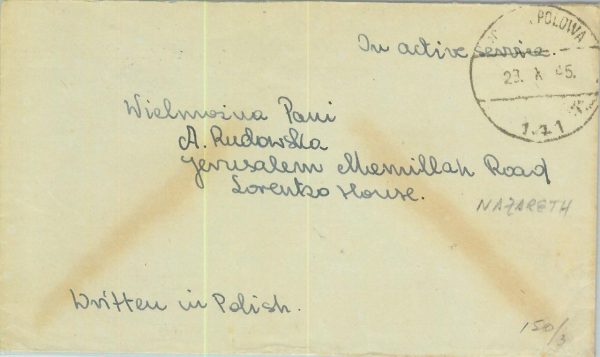 POLOWA
In active service.
23. X 45.
171
Wielmożna Pani
A. Rudowska
Jerusalem Mamillah Road
Lorenzo House.
NAZARETH
Written in Polish.
150/3